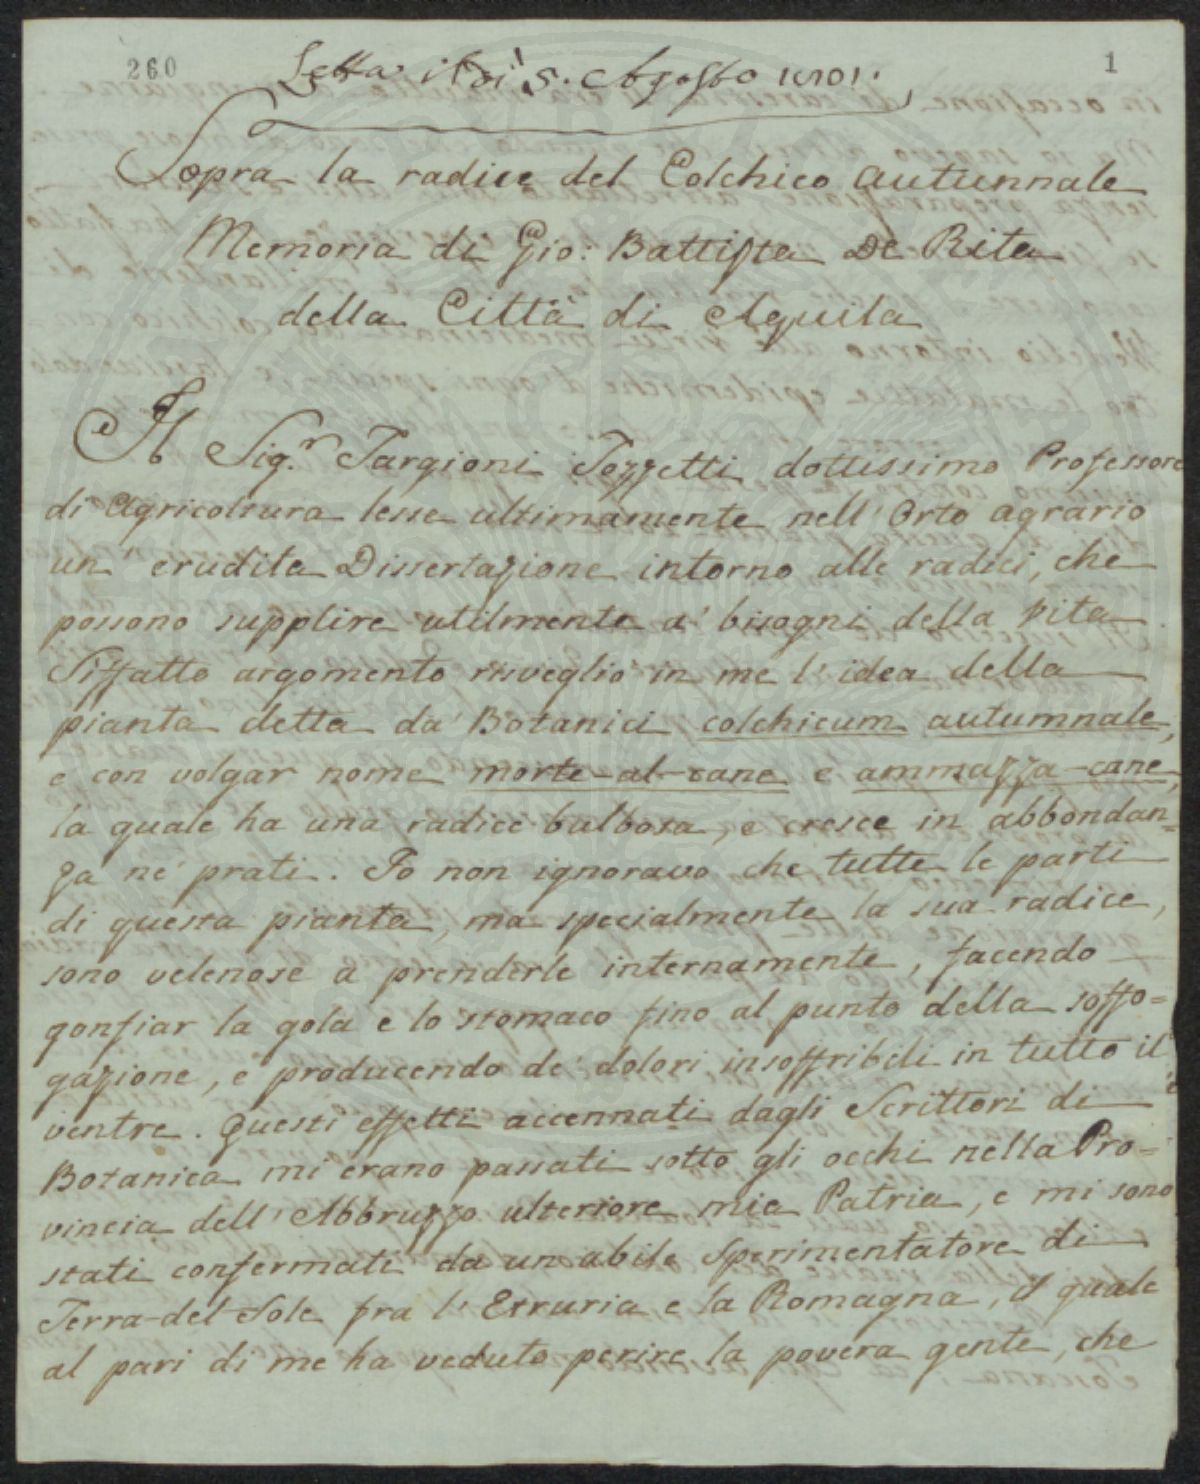 260
1
Letta il dì 5. Agosto 1801.
Sopra la radice del Colchico autunnale
Memoria di Gio: Battista De Rita
della Città di Aquila
Il Sig.r Targioni Tozzetti dottissimo Professore
di Agricoltura lesse ultimamente nell'Orto agrario
un erudita Dissertazione intorno alle radici, che
possono supplire utilmente a' bisogni della vita.
Siffatto argomento risvegliò in me l'idea della
pianta detta da' Botanici colchicum autumnale,
e con volgar nome morte-al-cane e ammazza-cane,
la quale ha una radice bulbosa, e cresce in abbondan=
za ne' prati. Io non ignoravo che tutte le parti
di questa pianta, ma specialmente la sua radice,
sono velenose a prenderle internamente, facendo
gonfiar la gola e lo stomaco fino al punto della soffo=
gazione, e producendo de' dolori insoffribili in tutto il
ventre. Questi effetti accennati dagli Scrittori di
Botanica mi erano passati sotto gli occhi nella Pro=
vincia dell'Abbruzzo ulteriore mia Patria, e mi sono
stati confermati da un abile sperimentatore di
Terra-del-Sole fra l'Etruria e la Romagna, il quale
al pari di me ha veduto perire la povera gente, che